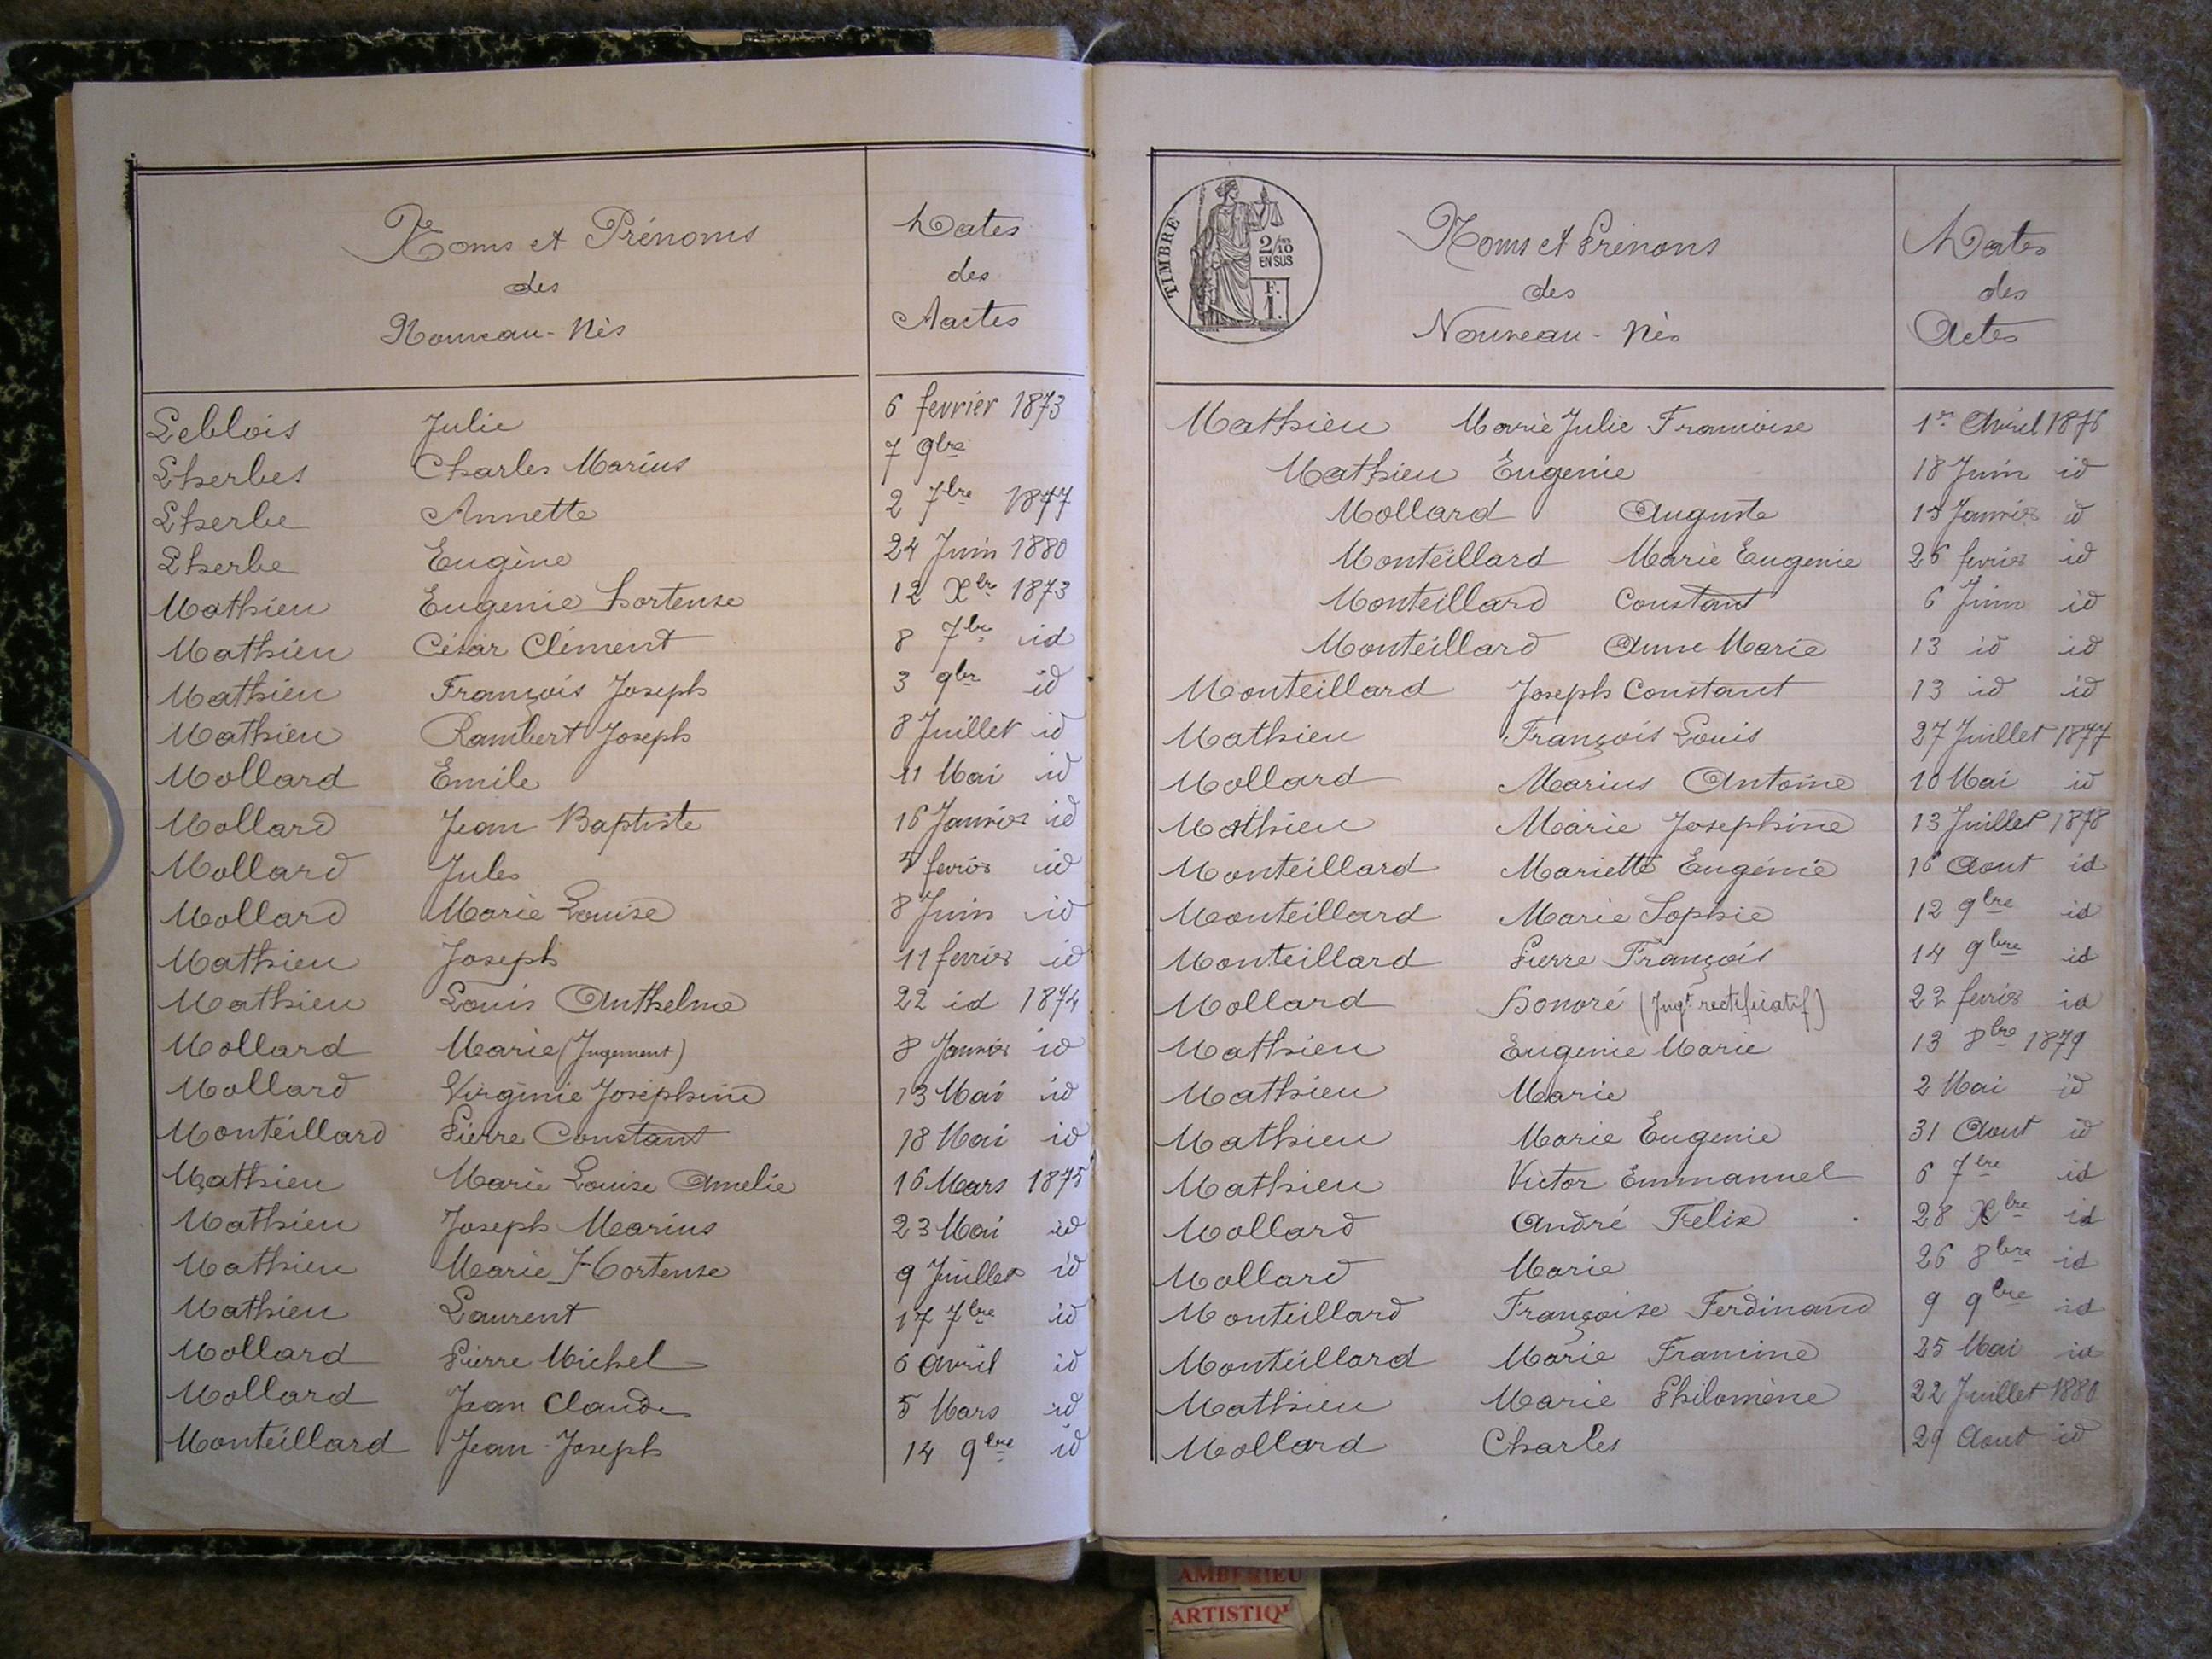 Noms et Prénoms
des
Nouveau-Nés
Dates
des
Aactes
Leblois Julie 6 fevrier 1873
Lherbes Charles Marius 7 9bre
Lherbe Annette 2 7bre 1877
Lherbe Eugène 24 Juin 1880
Mathieu Eugenie hortense 12 Xbre 1873
Mathieu César Clément 8 7bre id
Mathieu François Joseph 3 9bre id
Mathieu Rambert Joseph 8 Juillet id
Mollard Emile 11 Mai id
Mollard Jean Baptiste 16 Janvier id
Mollard Jules 5 fevrier id
Mollard Marie Louise 8 Juin id
Mathieu Joseph 11 fevrier id
Mathieu Louis Anthelme 22 id 1874
Mollard Marie (Jugement) 8 Janvier id
Mollard Virginie Joséphine 13 Mai id
Monteillard Pierre Constant 18 Mai id
Mathieu Marie Louise Amelie 16 Mars 1875
Mathieu Joseph Marius 23 Mai id
Mathieu Marie Hortense 9 Juillet id
Mathieu Laurent 17 7bre id
Mollard Pierre Michel 6 avril id
Mollard Jean Claude 5 Mars id
Monteillard Jean-Joseph 14 9bre id
TIMBRE
2/10
EN SUS
F.
1.
Noms et Prénons
des
Nouveau-Nés
Dates
des
Actes
Mathieu Marie Julie Francoise 1er Avril 1876
Mathieu Eugenie 18 Juin id
Mollard Auguste Janvier id
Monteillard Marie Eugenie 26 fevrier id
Monteillard Constant 6 Juin id
Monteillard Anne Marie 13 id id
Monteillard Joseph Constant 13 id id
Mathieu François Louis 27 Juillet 1877
Mollard Marius Antoine 10 Mai id
Mathieu Marie Josephine 13 Juillet 1878
Monteillard Mariette Eugénie 16 Aout id
Monteillard Marie Sophie 12 9bre id
Monteillard Pierre François 14 9bre id
Mollard Honoré (Jugt rectificatif) 22 fevrier id
Mathieu Eugenie Marie 13 8bre 1879
Mathieu Marie 2 Mai id
Mathieu Marie Eugenie 31 Aout id
Mathieu Victor Emmanuel 6 7bre id
Mollard André Felix 28 Xbre id
Mollard Marie 26 8bre id
Monteillard Françoise Ferdinand 9 9bre id
Monteillard Marie Francine 25 Mai id
Mathieu Marie Philomène 22 Juillet 1880
Mollard Charles 29 Aout id
AMBERIEU
ARTISTIQ